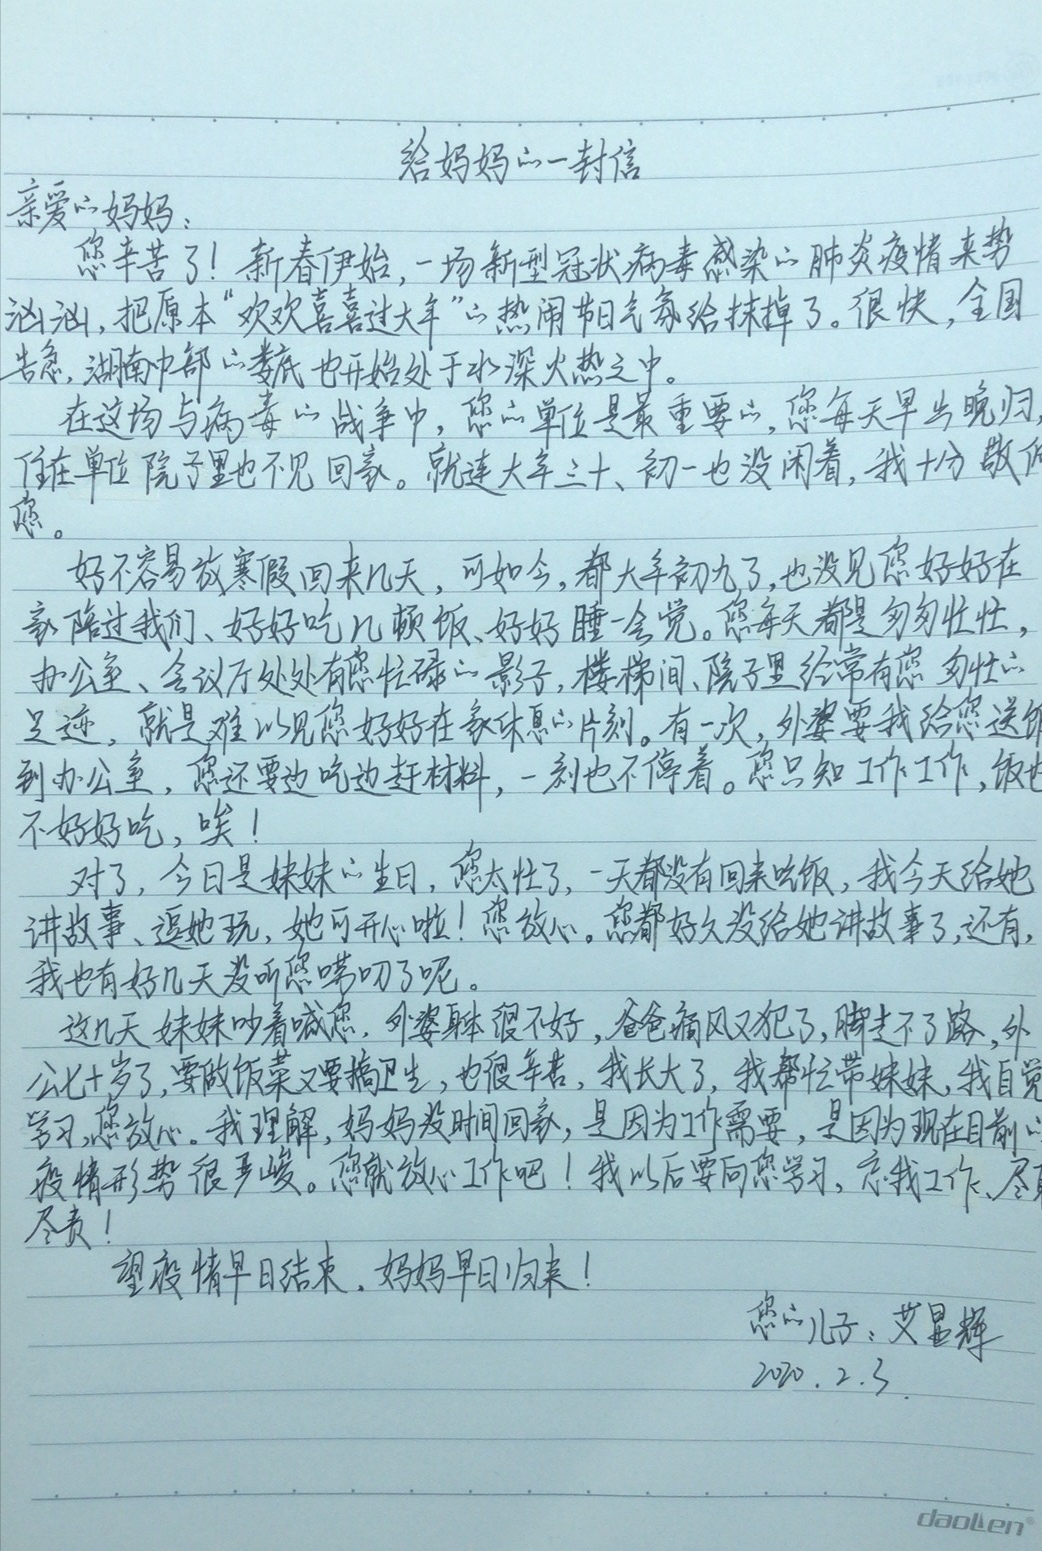 给妈妈的一封信
亲爱的妈妈：
您辛苦了！新春伊始，一场新型冠状病毒感染的肺炎疫情来势
汹汹，把原本“欢欢喜喜过大年”的热闹节日气氛给抹掉了。很快，全国
告急，湖南中部的娄底也开始处于水深火热之中。
在这场与病毒的战争中，您的单位是最重要的，您每天早出晚归，
住在单位院子里也不见回家。就连大年三十、初一也没闲着，我十分敬佩
您。
好不容易放寒假回来几天，可如今，都大年初九了，也没见您好好在
家陪过我们、好好吃几顿饭、好好睡一会觉。您每天都是匆匆忙忙，
办公室、会议厅处处有您忙碌的影子，楼梯间、院子里经常有您匆忙的
足迹，就是难以见您好好在家休息的片刻。有一次，外婆要我给您送饭
到办公室，您还要边吃边赶材料，一刻也不停着。您只知工作工作，饭也
不好好吃，唉！
对了，今日是妹妹的生日，您太忙了，一天都没有回来吃饭，我今天给她
讲故事、逗她玩，她可开心啦！您放心。您都好久没给她讲故事了，还有，
我也有好几天没听您唠叨了呢。
这几天妹妹吵着喊您，外婆身体很不好，爸爸痛风又犯了，脚走不了路，外
公七十岁了，要做饭菜又要搞卫生，也很辛苦，我长大了，我帮忙带妹妹，我自觉
学习，您放心。我理解，妈妈没时间回家，是因为工作需要，是因为现在目前的
疫情形势很严峻。您就放心工作吧！我以后要向您学习，忘我工作、尽职
尽责！
望疫情早日结束，妈妈早日归来！
您的儿子：艾显辉
2020.2.3.
daoLen